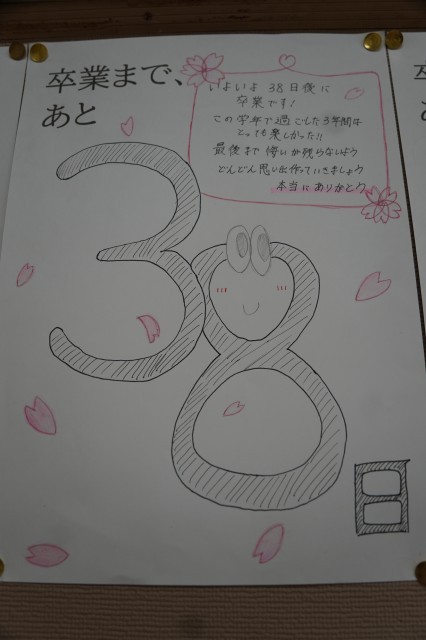 卒業まで、
あと
いよいよ 38日後に
卒業です!
この学年で過ごした3年間は
とっても楽しかった!!
最後まで悔いが残らないよう
どんどん思い出作っていきましょう
本当にありがとう
38
日